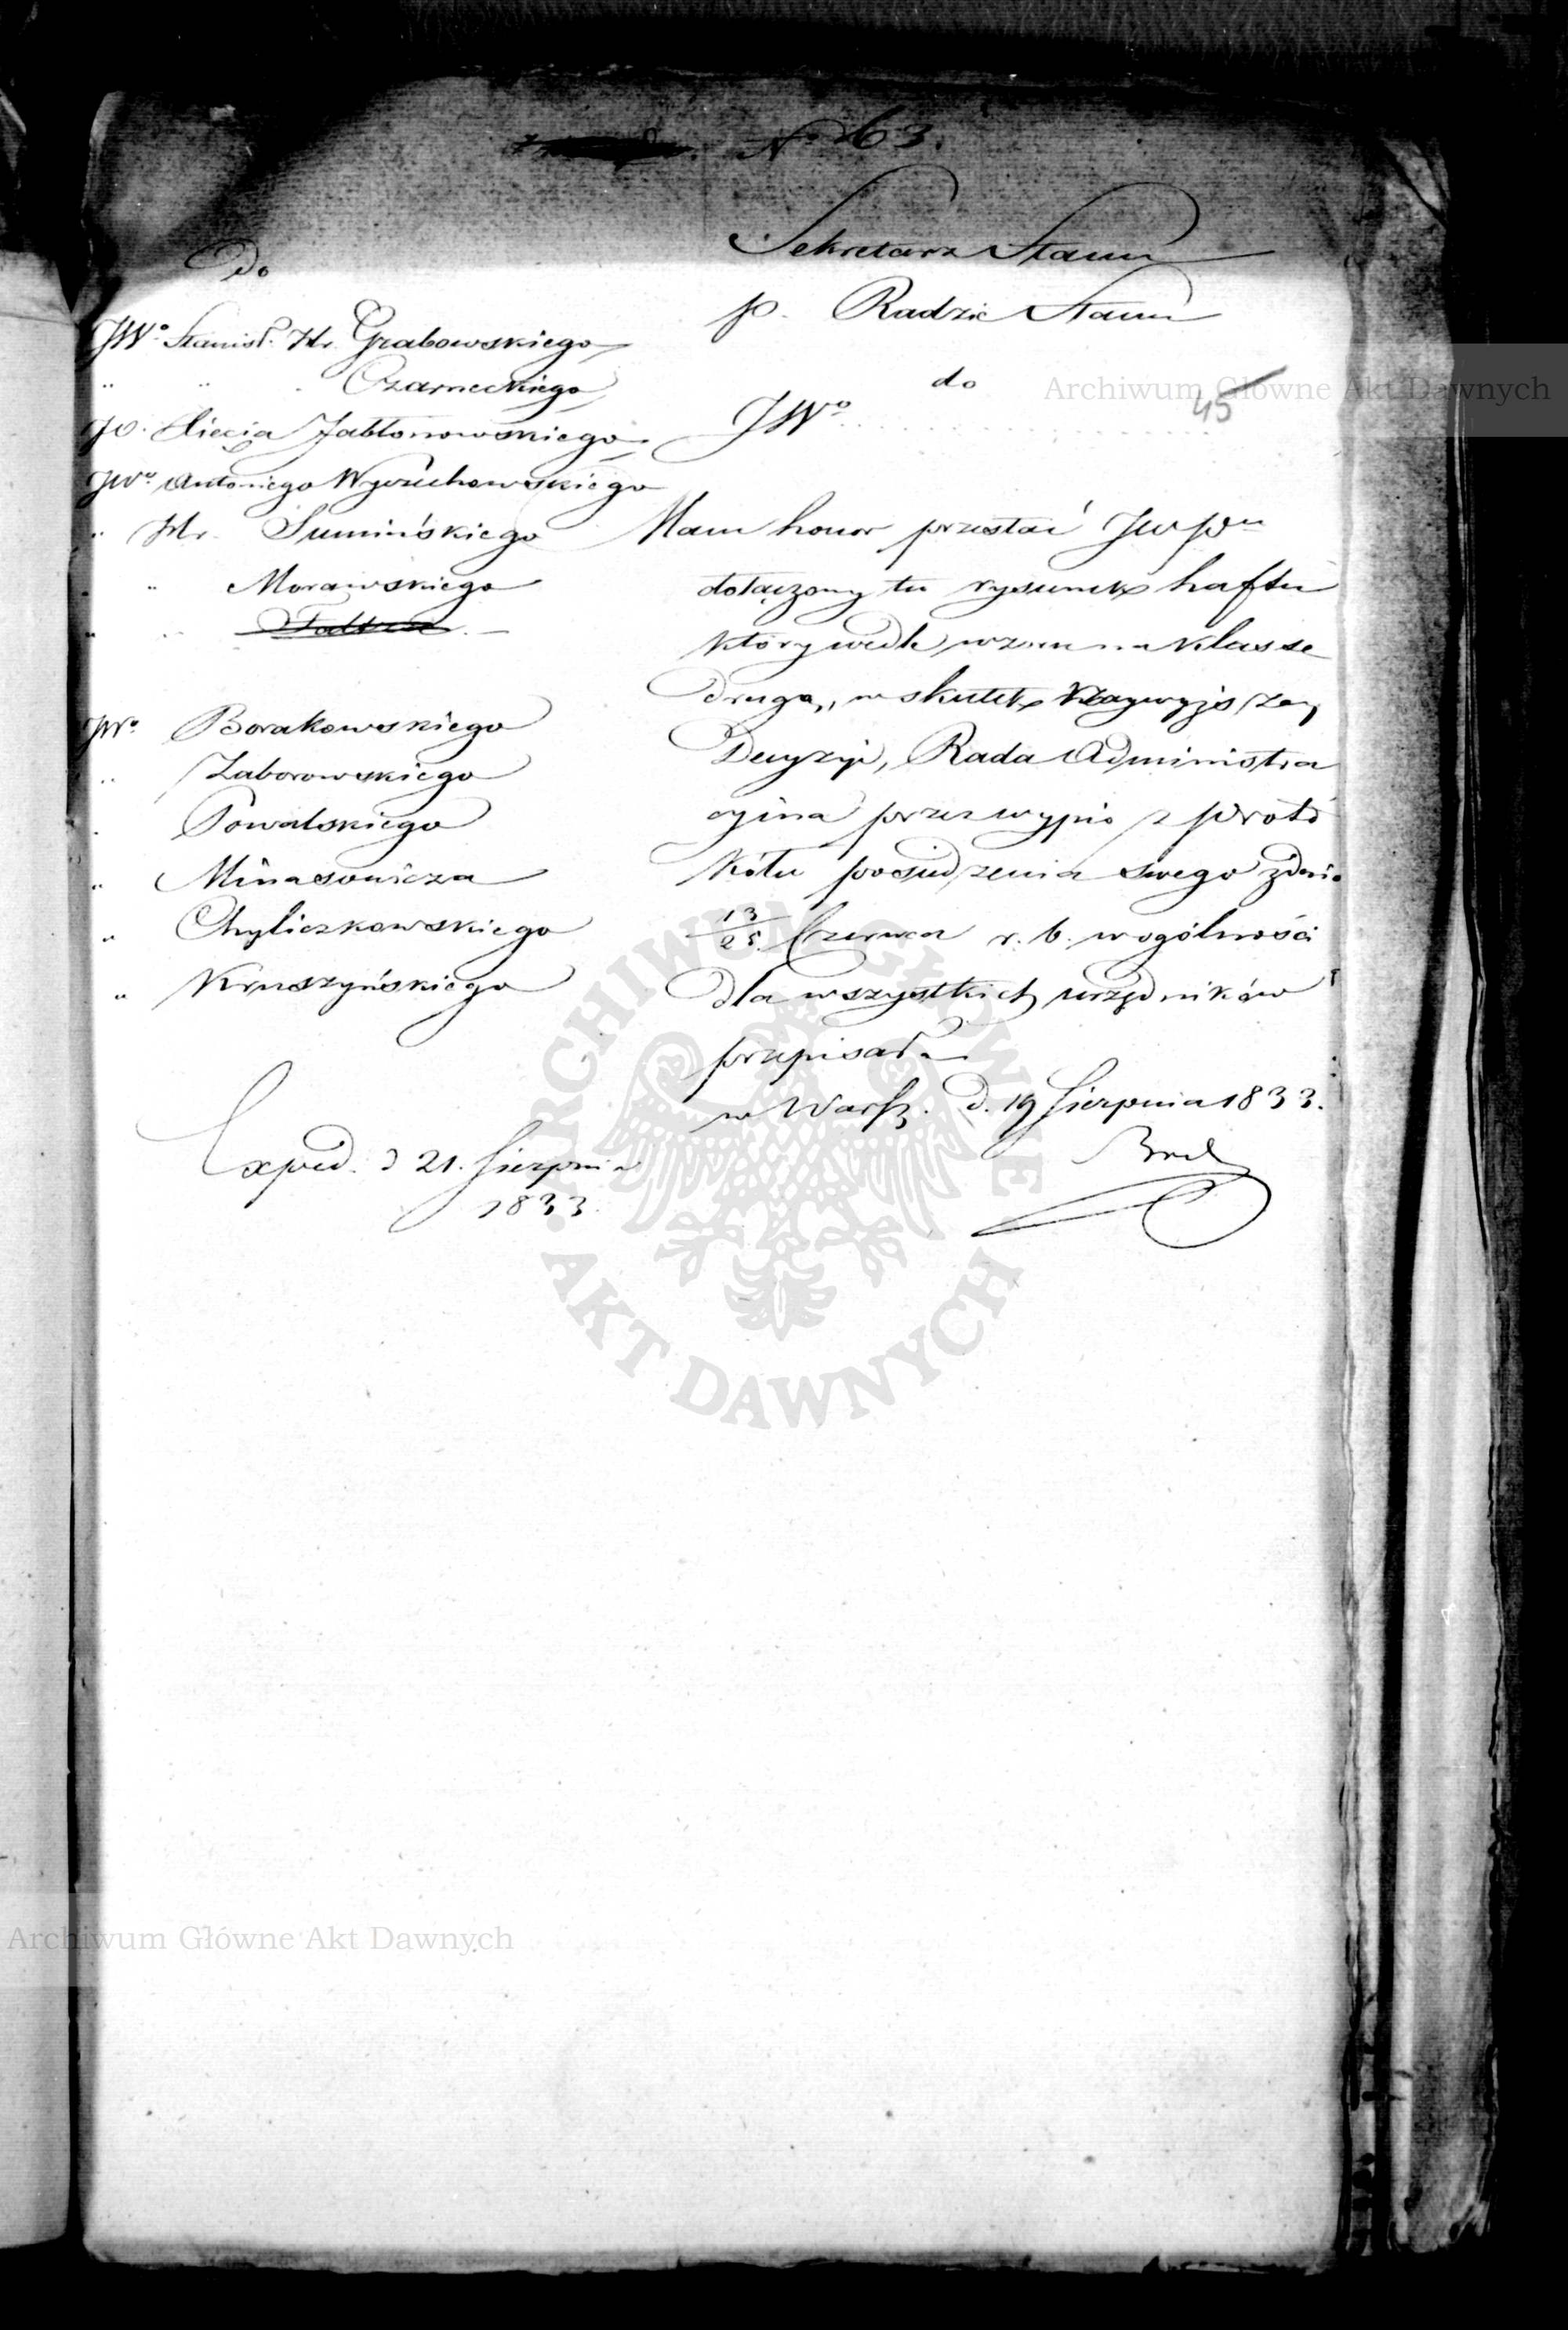 No 63.
Do
JWo Stanisł. Hr. Grabowskiego
" " Czarneckiego
JO. Xięcia Jabłonowskiego
JWo Antoniego Wyczechowskiego
" Hr. Sumińskiego
" " Morawskiego
JWo Borakowskiego
" Zaborowskiego
" Powalskiego
" Minasowicza
" Chyliczkowskiego
" Kruszyńskiego
Exped. d 21. Sierpnia
1833.
Sekretarz Stanu
p. Radzie Stanu
do
JWo
45
Mam honor przesłać JW Pu
dołączony tu rysunek haftu
który wedle wzoru na klasse
drugą, w skutek Naywyższey
Decyzyi, Rada Administra
cyina przez wypis z Proto
kółu posiedzenia swego z dnia
13/25 Czerwca r. b. w ogólności
dla wszystkich urzędników
przepisała
w Warsz. d. 19 Sierpnia 1833.
Archiwum Główne Akt Dawnych
ARCHIWUM GŁÓWNE
AKT DAWNYCH
Archiwum Główne Akt Dawnych